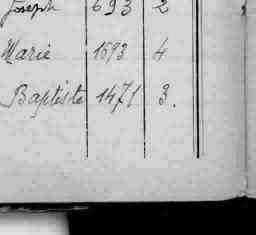 Joseph 693 2
Marie 1693 4
Baptiste 1471 3.